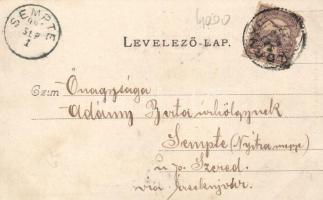 4000
SEMPTE
SEP
1
LEVELEZŐ-LAP.
Czim Önagysága
Adámy Berta úrhölgynek
Sempte (Nyitra megye)
u. p. Szered.
via Érsekujvár.